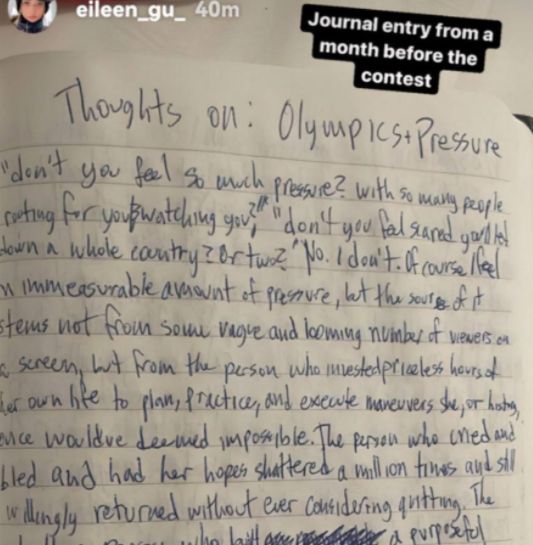 eileen_gu_ 40m
Journal entry from a
month before the
contest
Thoughts on: Olympics + Pressure
"don't you feel so much pressure? With so many people
rooting for you & watching you?" "don't you feel scared you'll let
down a whole country? Or two?" No. I don't. Of course I feel
n immeasurable amount of pressure, but the source of it
stems not from some vague and looming number of viewers on
a screen, but from the person who invested priceless hours of
her own life to plan, practice, and execute maneuvers she, or history,
once would've deemed impossible. The person who cried and
bled and had her hopes shattered a million times and still
willingly returned without ever considering quitting. The
person who built a purposeful